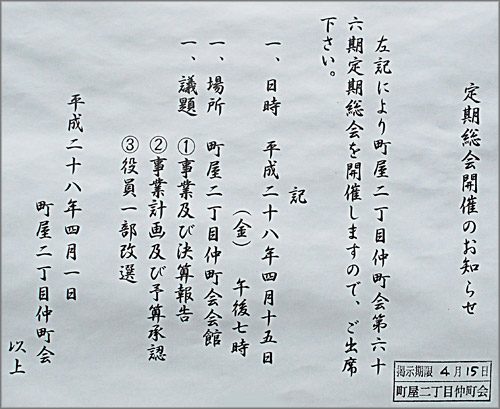 定期総会開催のお知らせ
左記により町屋二丁目仲町会第六十
六期定期総会を開催しますので、ご出席
下さい。
記
一、日時　平成二十八年四月十五日
（金）　午後七時
一、場所　町屋二丁目仲町会会館
一、議題　①事業及び決算報告
②事業計画及び予算承認
③役員一部改選
平成二十八年四月一日
町屋二丁目仲町会
以上
掲示期限 4月15日
町屋二丁目仲町会